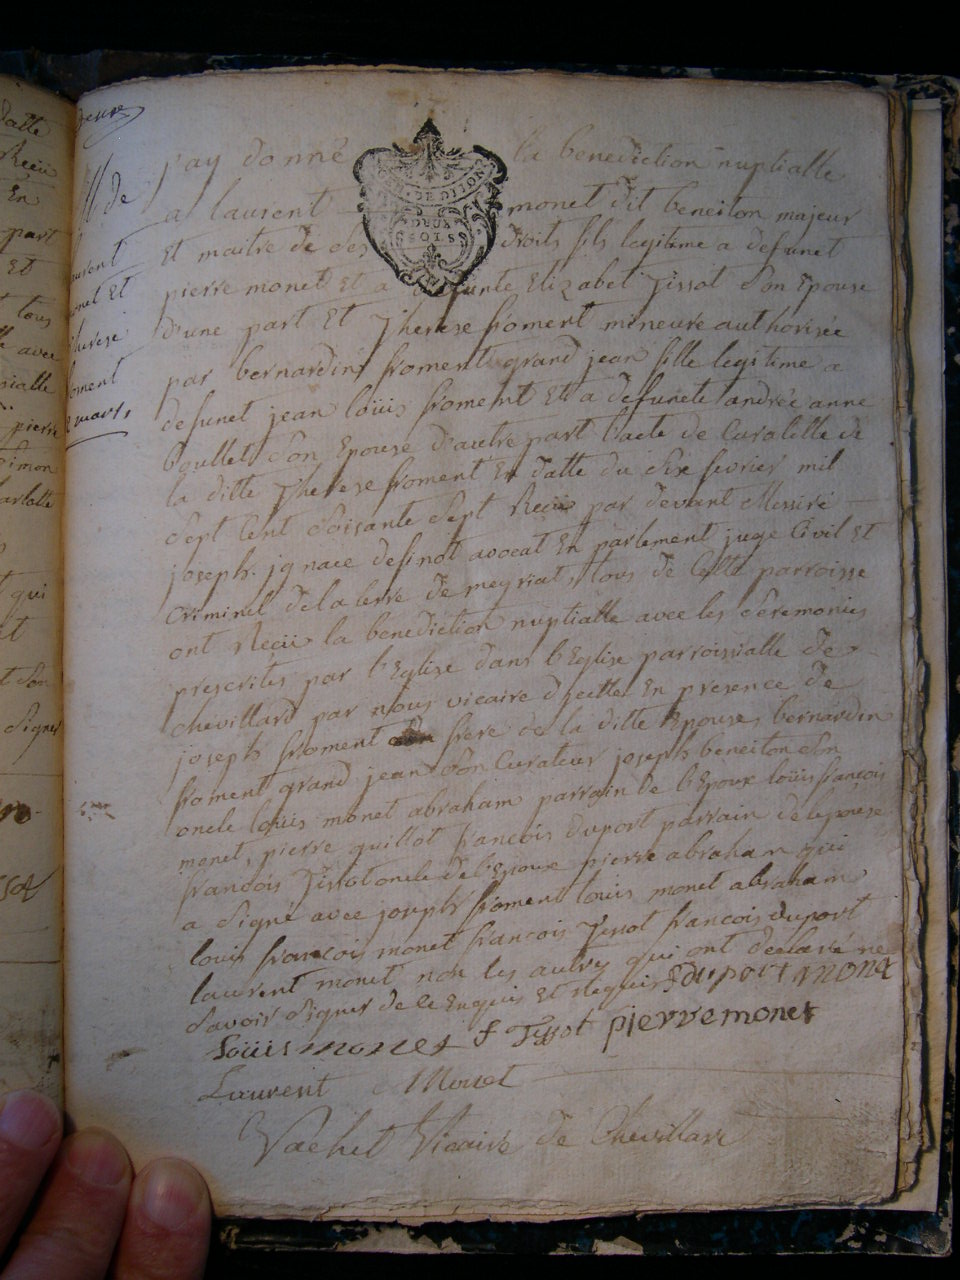 j'ay donné la benediction nuptialle
a laurent monet dit beneiton majeur
Et maitre de ses droits fils legitime a defunct
pierre monet Et a defunte Elizabet Tissot son Epouse
d'une part Et Therese froment mineure authorisée
par bernardin froment grand jean fille legitime a
defunct jean loüis froment Et a defuncte andrée anne
goullet son Epouse d'autre part l'acte de Curatelle de
la ditte Therese froment En datte du six fevrier mil
sept Cent soisante sept Reçu par devant Messire
joseph ignace definot avocat En parlement juge Civil Et
Criminel de la terre de meyriat, tous de Cette parroisse
ont Reçu la benediction nuptialle avec les Ceremonies
prescrites par l'Eglise dans l'Eglise parroissialle de
chevillard par nous vicaire d'jcelle En presence de
joseph froment frere de la ditte Epouse, bernardin
froment grand jean son Curateur joseph beneiton son
oncle loüis monet abraham parrain de l'Epoux loüis françois
monet, pierre guillot françois duport parrain de lepouse
françois Tissot oncle de l'Epoux pierre abraham qui
a signé avec joseph froment louis monet abraham
louis françois monet françois Tissot françois duport
laurent monet non les autres qui ont declarré ne
savoir signer de ce Enquis Et Requis f duport monet
Loüis monet f Tissot pierre monet
Laurent Monet
Vachet Vicaire de Chevillard
de
laurent
monet Et
therese
froment
mars